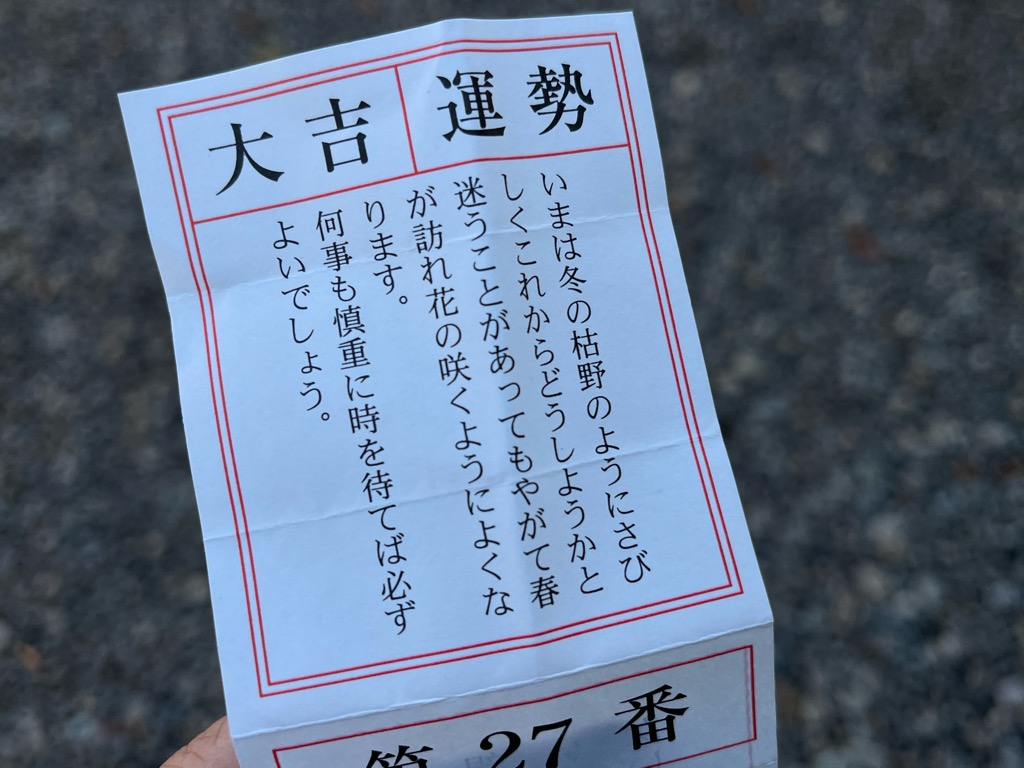 運勢
大吉
いまは冬の枯野のようにさび
しくこれからどうしようかと
迷うことがあってもやがて春
が訪れ花の咲くようによくな
ります。
何事も慎重に時を待てば必ず
よいでしょう。
第27番